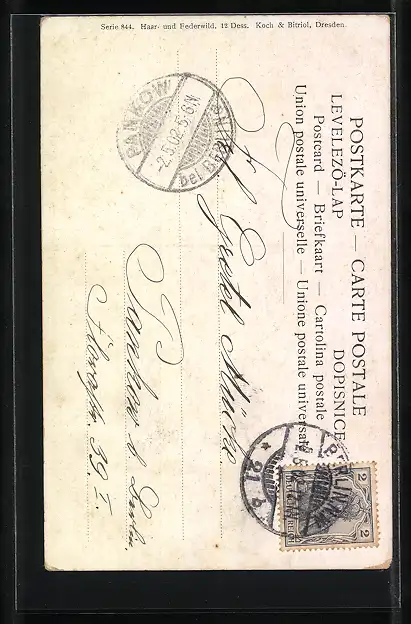 Serie 844. Haar- und Federwild, 12 Dess. Koch & Bitriol, Dresden
POSTKARTE — CARTE POSTALE
LEVELEZŐ-LAP DOPISNICE
Postcard — Briefkaart — Cartolina postale
Union postale universelle — Unione postale universale
PANKOW
2.5.02.5-6N
bei
BERLIN
21 b
2 2
Gretel
Pankow b. Berlin
39 I.